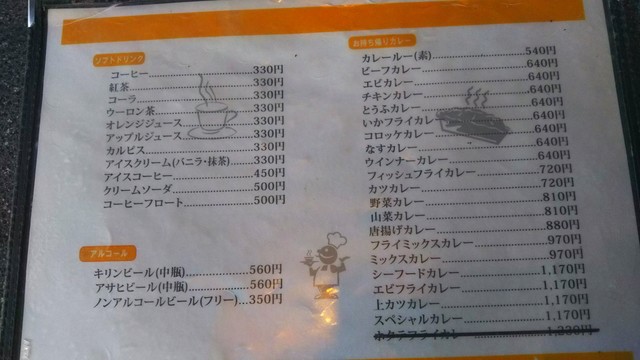 ソフトドリンク
コーヒー 330円
紅茶 330円
コーラ 330円
ウーロン茶 330円
オレンジジュース 330円
アップルジュース 330円
カルピス 330円
アイスクリーム(バニラ・抹茶) 330円
アイスコーヒー 450円
クリームソーダ 500円
コーヒーフロート 500円
アルコール
キリンビール(中瓶) 560円
アサヒビール(中瓶) 560円
ノンアルコールビール(フリー) 350円
お持ち帰りカレー
カレールー(素) 540円
ビーフカレー 640円
エビカレー 640円
チキンカレー 640円
とうふカレー 640円
いかフライカレー 640円
コロッケカレー 640円
なすカレー 640円
ウインナーカレー 640円
フィッシュフライカレー 720円
カツカレー 720円
野菜カレー 810円
山菜カレー 810円
唐揚げカレー 880円
フライミックスカレー 970円
ミックスカレー 970円
シーフードカレー 1,170円
エビフライカレー 1,170円
上カツカレー 1,170円
スペシャルカレー 1,170円
ホタテフライカレー 1,330円